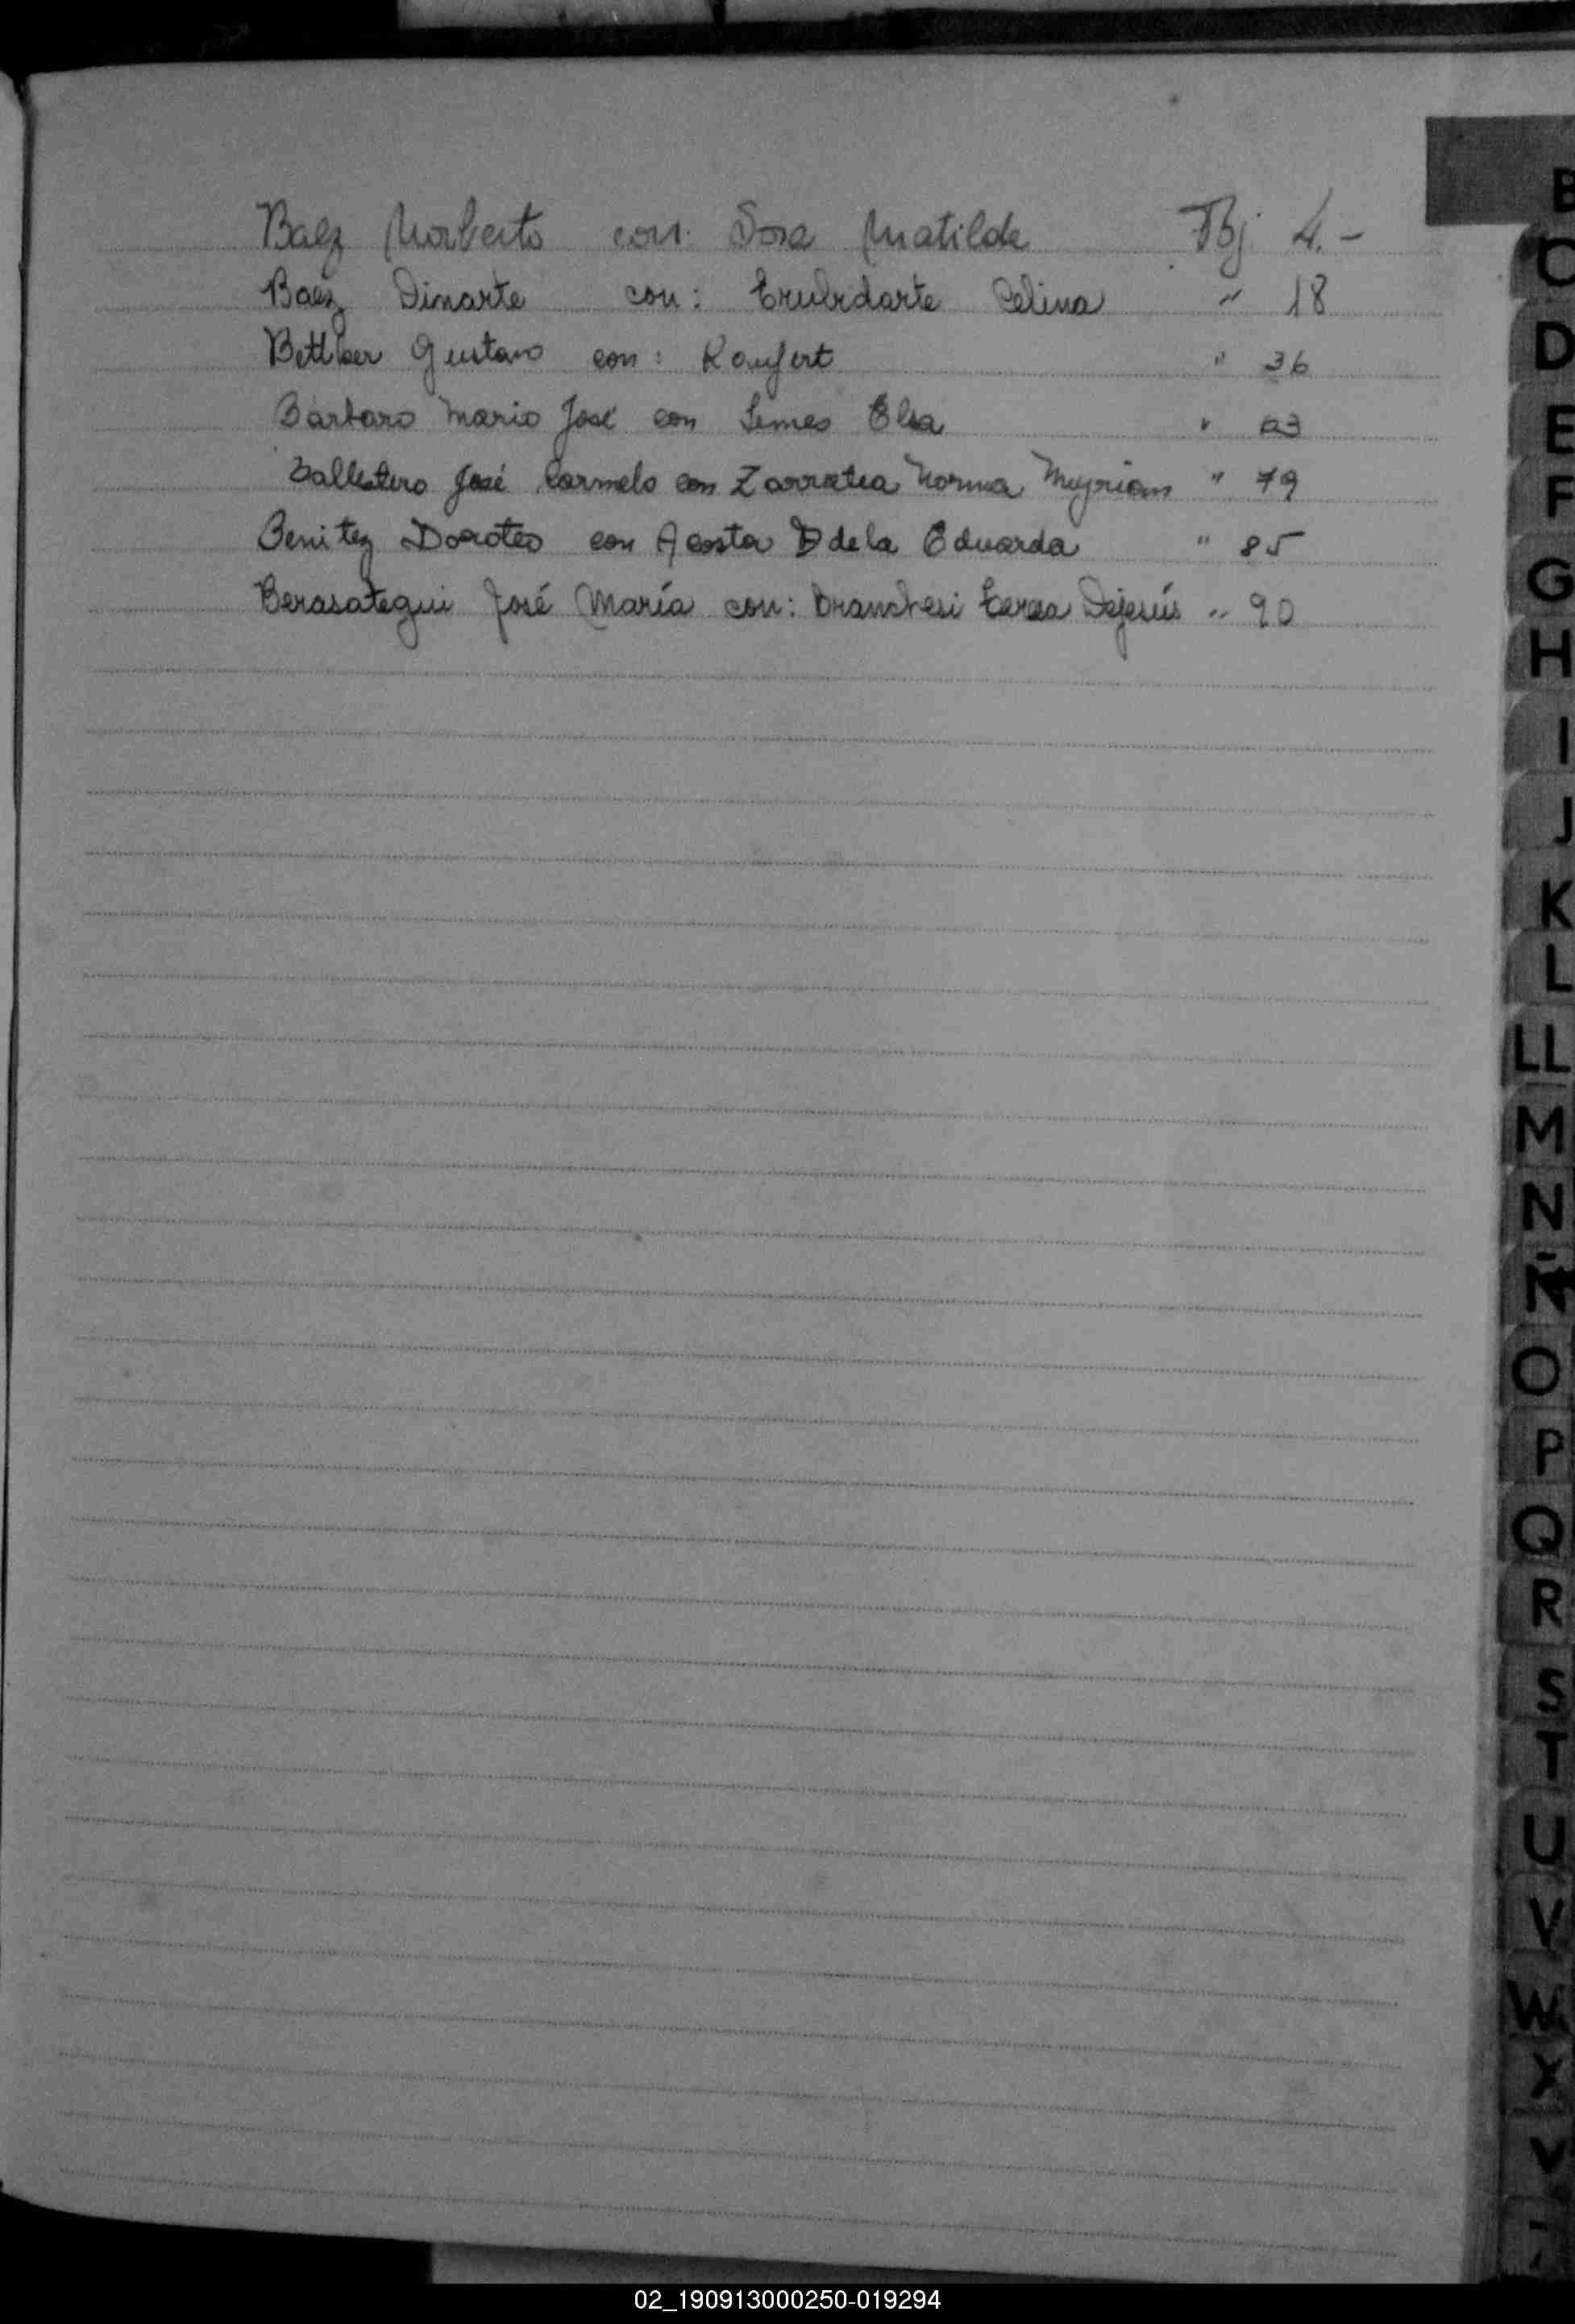 Baez Norberto con: Sosa Matilde Fbj 4.-
Baez Dinarte con: Erubidarte Celina " 18
Gustavo con: Kaufert " 36
Bárbaro Mario José con Lemes Elsa "
Ballestero José Carmelo con Zarratea Norma Myrian " 79
Benitez Doroteo con Acosta dela Eduarda " 85
Berasategui José María con: Dejesús " 90
B
C
D
E
F
G
H
I
J
K
L
LL
M
N
Ñ
O
P
Q
R
S
T
U
V
W
X
Y
02_190913000250-019294